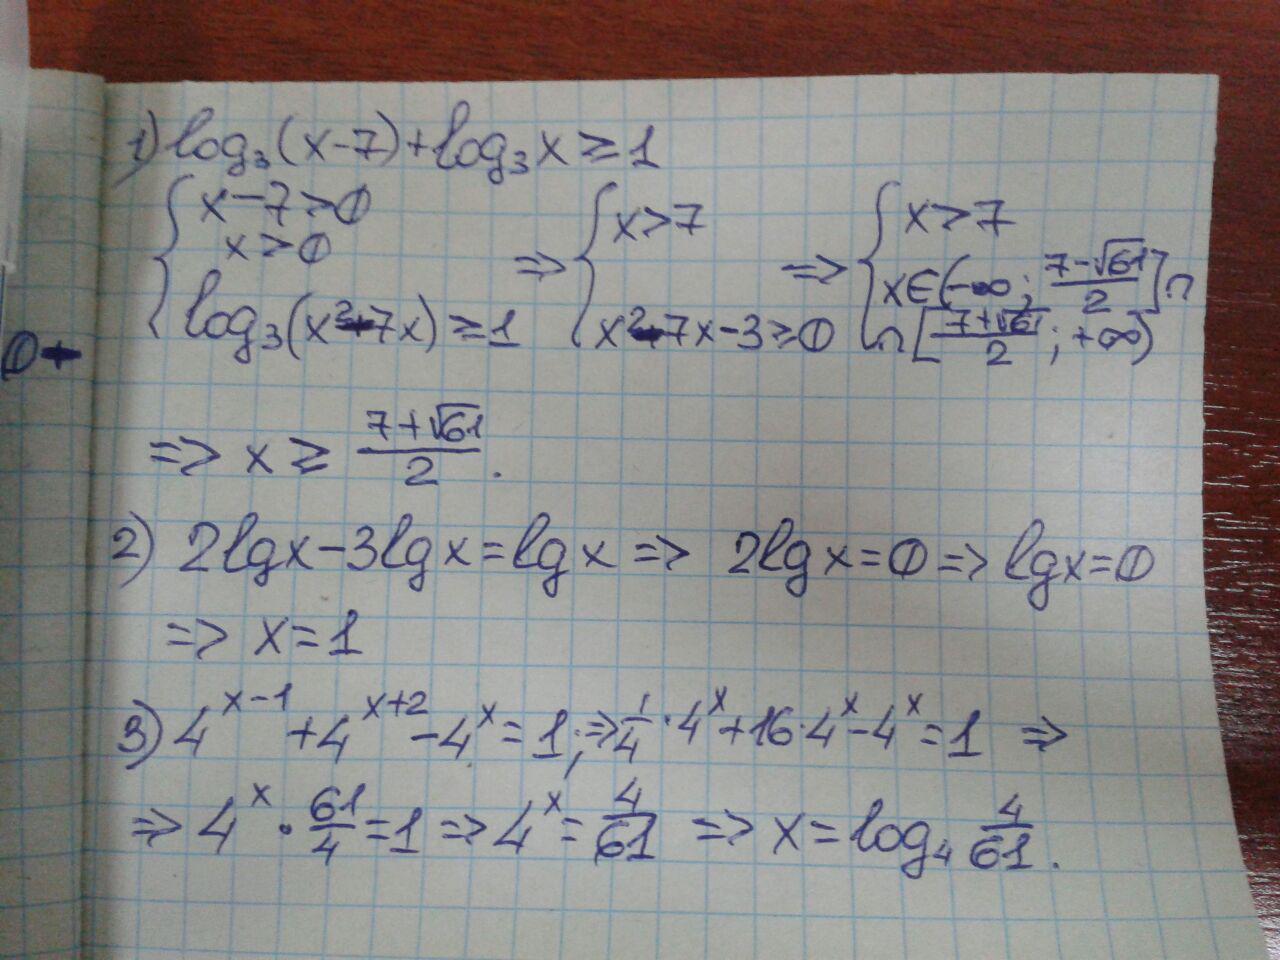 1) log₃(x-7)+log₃x≥1
{ x-7>0
x>0 ⇒ { x>7 ⇒ { x>7
log₃(x²-7x)≥1 x²-7x-3≥0 x∈(-∞; (7-√61)/2]∩
∩[(7+√61)/2; +∞)
0+
⇒ x ≥ (7+√61)/2.
2) 2lgx-3lgx=lgx ⇒ 2lgx=0 ⇒ lgx=0
⇒ x=1
3) 4^(x-1)+4^(x+2)-4^x=1; ⇒ 1/4·4^x+16·4^x-4^x=1 ⇒
⇒ 4^x · 61/4=1 ⇒ 4^x=4/61 ⇒ x=log₄ 4/61.